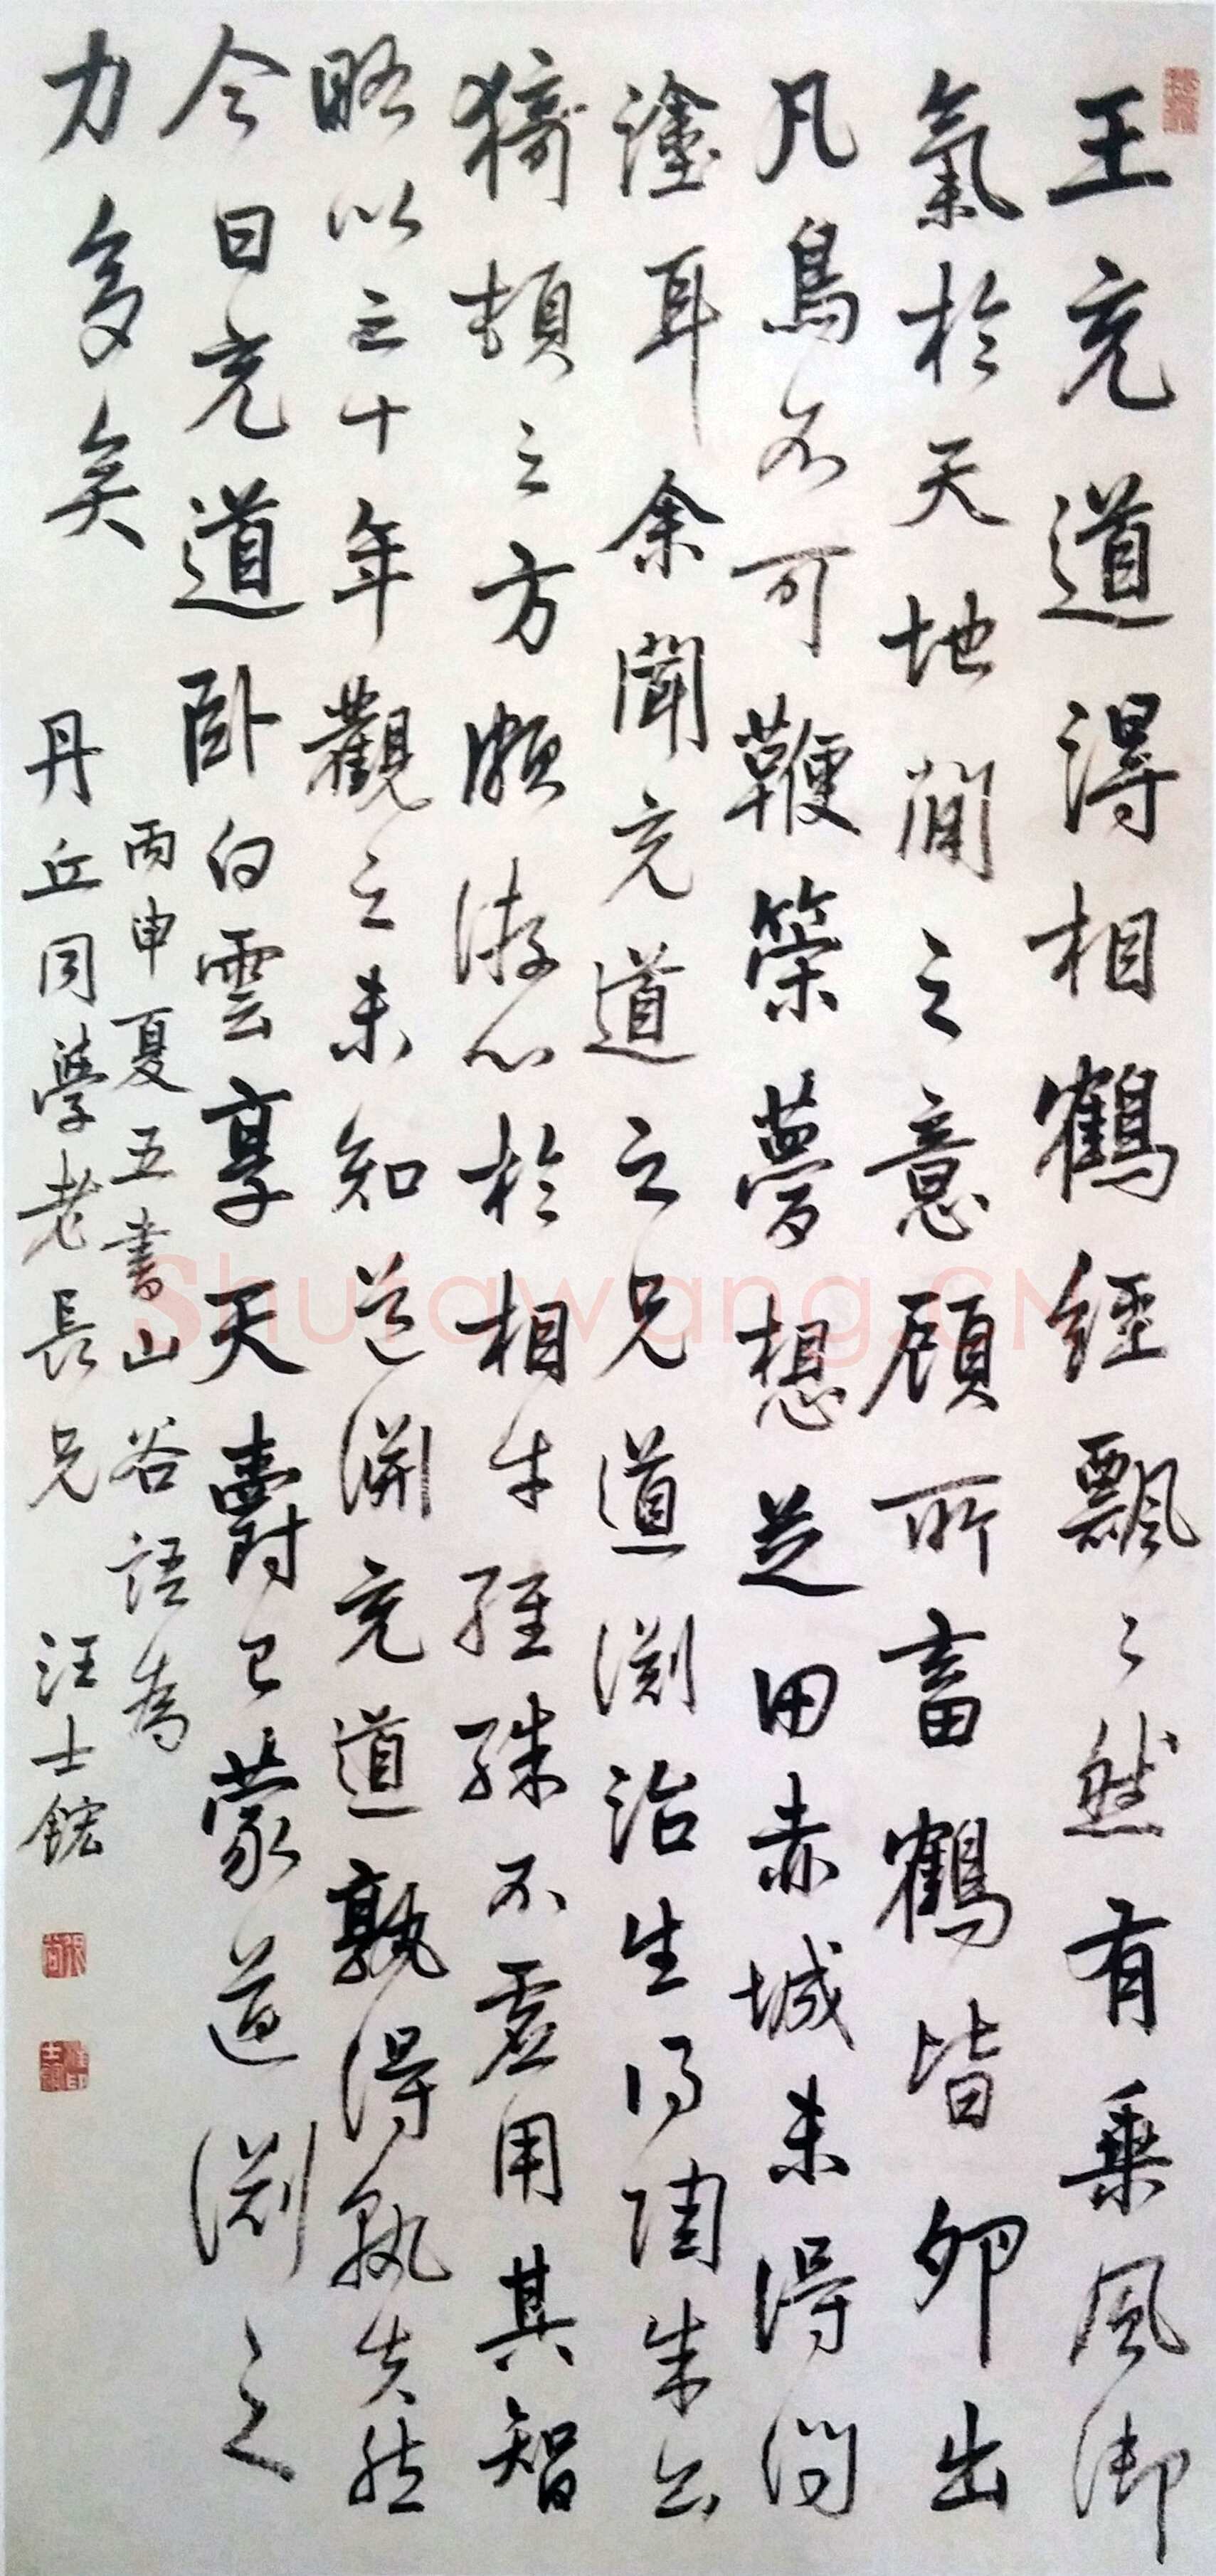 王充道得相鶴經飄〻然有乘風御
氣於天地間之意顧所畜鶴皆卵出
凡鳥不可鞭策夢想芝田赤城未得問
塗耳余聞充道之兄道淵治生得陶朱公
猗頓之方頗游心於相牛經殊不虛用其智
略以三十年觀之未知道淵充道孰得孰失然
今日充道卧白雲享天爵已蒙道淵之
力多矣
丙申夏五書山谷語為
丹丘同學老長兄 汪士鋐
Shufawang.CN